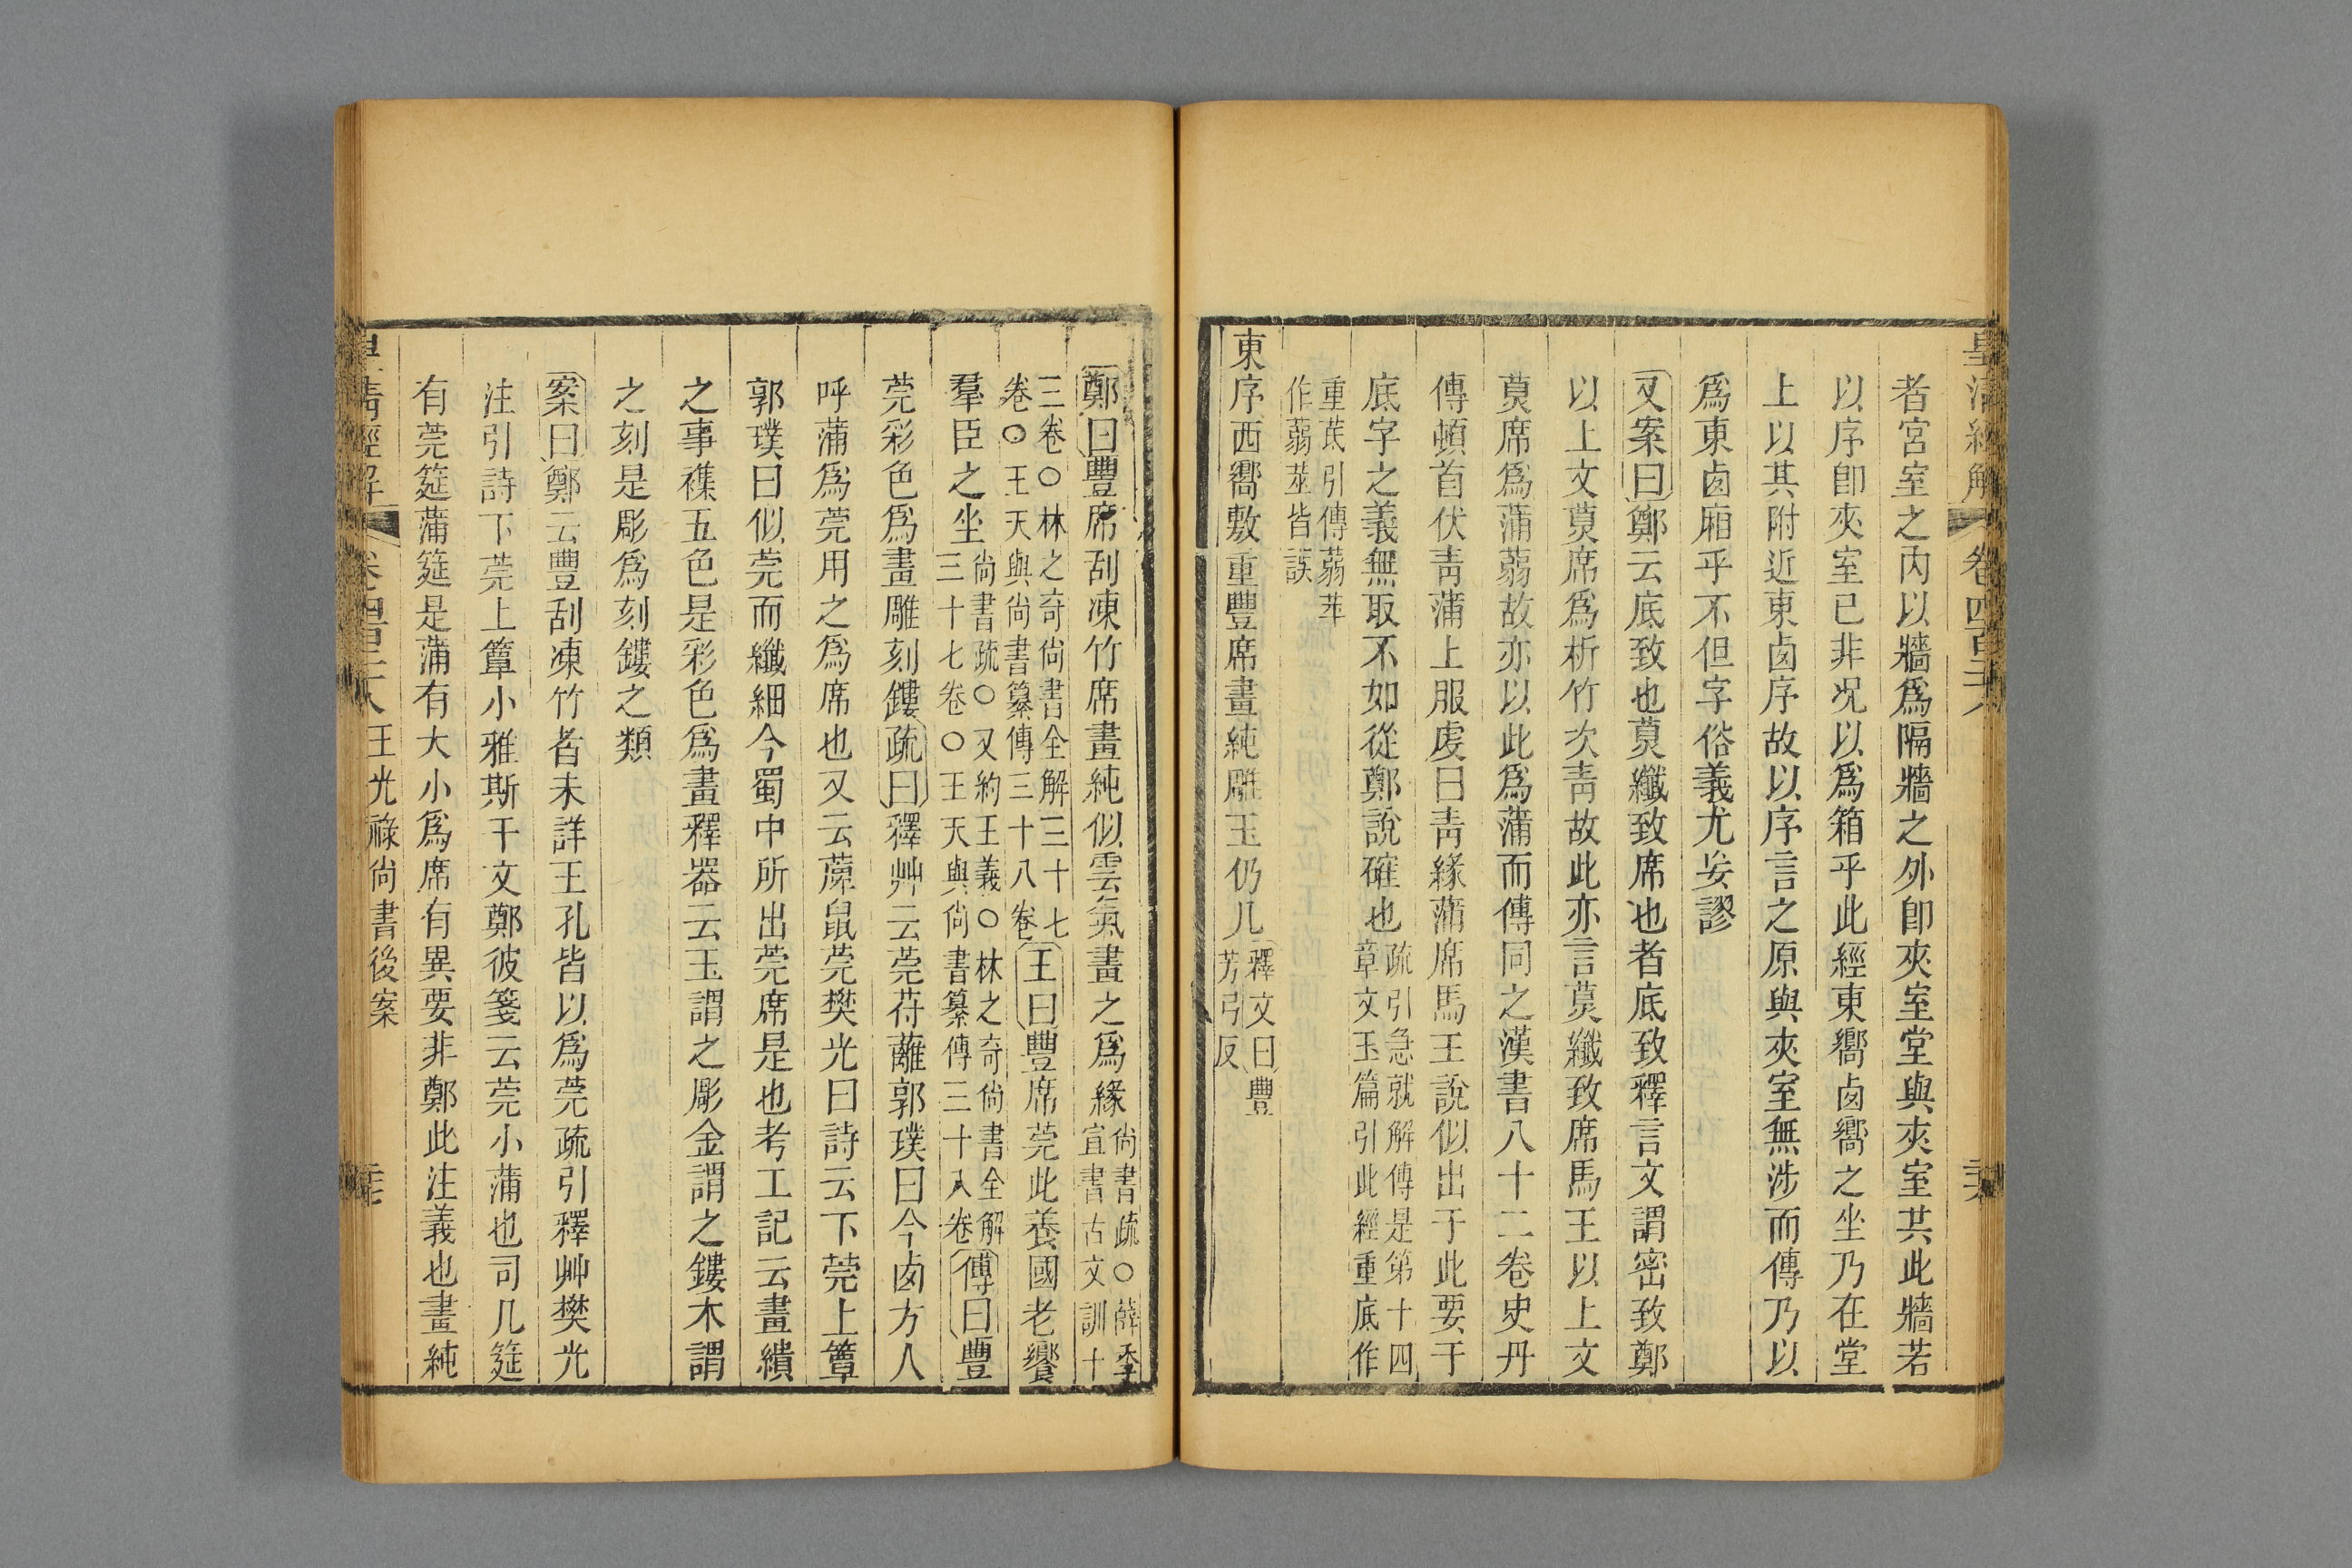 皇清經解 卷四百二十八
者宮室之內以牆爲隔牆之外卽夾室堂與夾室共此牆若
以序卽夾室已非况以爲箱乎此經東嚮𠧧嚮之坐乃在堂
上以其附近東𠧧序故以序言之原與夾室無涉而傳乃以
爲東𠧧廂乎不但字俗義尤妄謬
又案曰鄭云底致也蔑纖致席也者底致釋言文謂密致鄭
以上文蔑席爲析竹次靑故此亦言蔑纖致席馬王以上文
蔑席爲蒲蒻故亦以此爲蒲而傳同之漢書八十二卷史丹
傳頓首伏靑蒲上服虔曰靑緣蒲席馬王說似出于此要于
底字之義無取不如從鄭說確也疏引急就解傳是第十四
章文玉篇引此經重底作
重茋引傳蒻苹
作蒻莁皆誤
東序西嚮敷重豐席畫純雕玉仍几釋文曰豐
芳弓反
鄭曰豐席刮凍竹席畫純似雲氣畫之爲緣尙書疏〇薛季
宣書古文訓十
三卷〇林之奇尙書全解三十七
卷〇王天與尙書纂傳三十八卷王曰豐席莞此養國老饗
羣臣之坐尙書疏〇又約王義〇林之奇尙書全解
三十七卷〇王天與尙書纂傳三十八卷傳曰豐
莞彩色爲畫雕刻鏤疏曰釋艸云莞苻蘺郭璞曰今𠧧方人
呼蒲爲莞用之爲席也又云薡鼠莞樊光曰詩云下莞上簟
郭璞曰似莞而纖細今蜀中所出莞席是也考工記云畫繢
之事襍五色是彩色爲畫釋器云玉謂之彫金謂之鏤木謂
之刻是彫爲刻鏤之類
案曰鄭云豐刮凍竹者未詳王孔皆以爲莞疏引釋艸樊光
注引詩下莞上簟小雅斯干文鄭彼箋云莞小蒲也司几筵
有莞筵蒲筵是蒲有大小爲席有異要非鄭此注義也畫純
淸經解 卷四百二十八 王光祿尙書後案